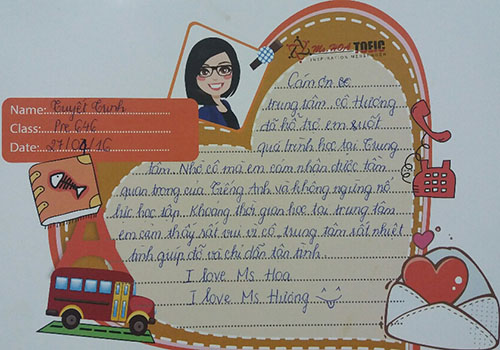 Ms. HOA TOEIC
INSPIRATION MESSENGER
Name: Tuyết Trinh
Class: Pre G46
Date: 27/04/16
Cám ơn
trung tâm, cô Hương
đã hỗ trợ em suốt
quá trình học tại trung
tâm. Nhờ cô mà em cảm nhận được tầm
quan trọng của Tiếng Anh và không ngừng nỗ
lực học tập. Khoảng thời gian học tại trung tâm
em cảm thấy rất vui vì cô, trung tâm rất nhiệt
tình giúp đỡ và chỉ dẫn tận tình.
I love Ms Hoa
I love Ms. Hương